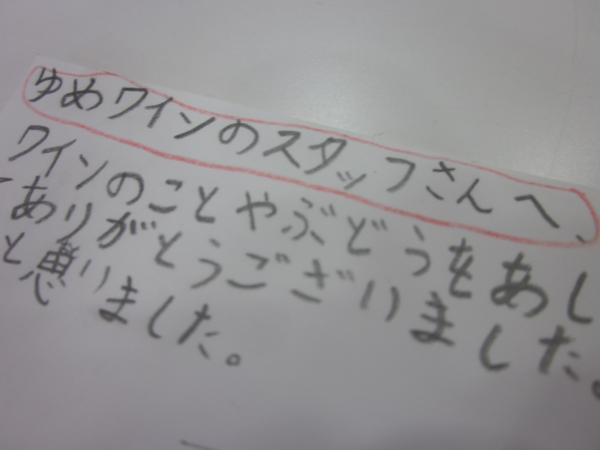 ゆめワインのスタッフさんへ、
ワインのことやぶどうをあし
ありがとうございました。
と思いました。